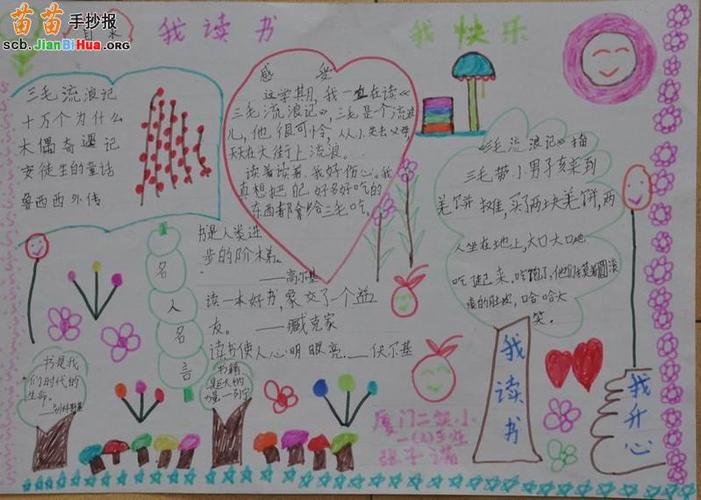 苗苗手抄报
scb.JianBiHua.ORG
我读书
我快乐
三毛流浪记
十万个为什么
木偶奇遇记
安徒生的童话
鲁西西外传
感受
这学期,我一直在读《
三毛流浪记》,三毛是个流浪
儿,他很可怜,从小失去父母
天天在大街上流浪。
读着读着,我好伤心。我
真想把 好多好吃的
东西都 给三毛吃。
《三毛流浪记》描
三毛带小男孩来到
羌饼摊,买了两块羌饼,两
人坐在地上,大口大口地
吃起来。吃饱了,他们
的肚皮,哈哈大
笑。
名人名言
书是人类进
步的阶梯。
——高尔基
读一本好书,象交了个益
友。——臧克家
读书使人心明眼亮。——伏尔基
书是我
们时代的
生命。
书籍
是巨大的
力量。—列宁
我读书
我开心
厦门二实小
一(2)